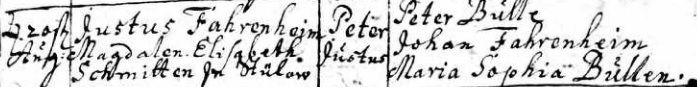 Justus Fahrenheim
Magdalen. Elisabeth.
Schmitten In Stülow
Peter
Justus
Peter Bülle
Johan Fahrenheim
Maria Sophia Büllen.